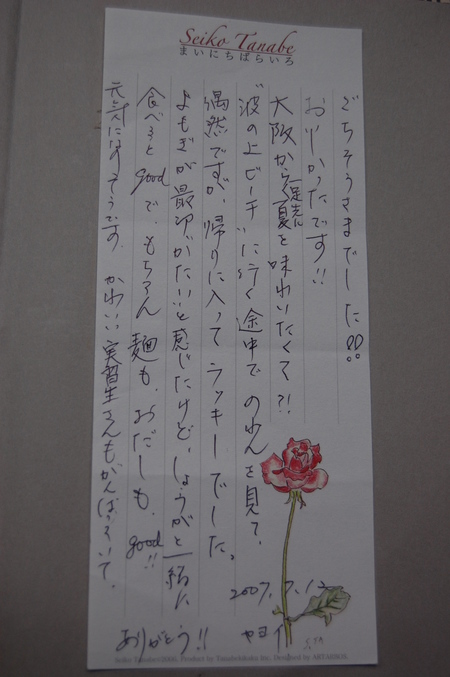 Seiko Tanabe
まいにちばらいろ
ごちそうさまでした!!
おいしかったです!!
大阪から一足先に夏を味わいたくて?!
"波の上ビーチ"に行く途中でのれんを見て、
偶然ですが、帰りに入ってラッキーでした。
よもぎが最初"かたい"と感じたけど、しょうがと一緒に
食べるとgoodで、もちろん麺も、おだしも、good!!
元気になりそうです。かわいい実習生さんもがんばっていて、
ありがとう!!
2007.7.12
ヤヨイ
Seiko Tanabe©2006, Product by Tanabe